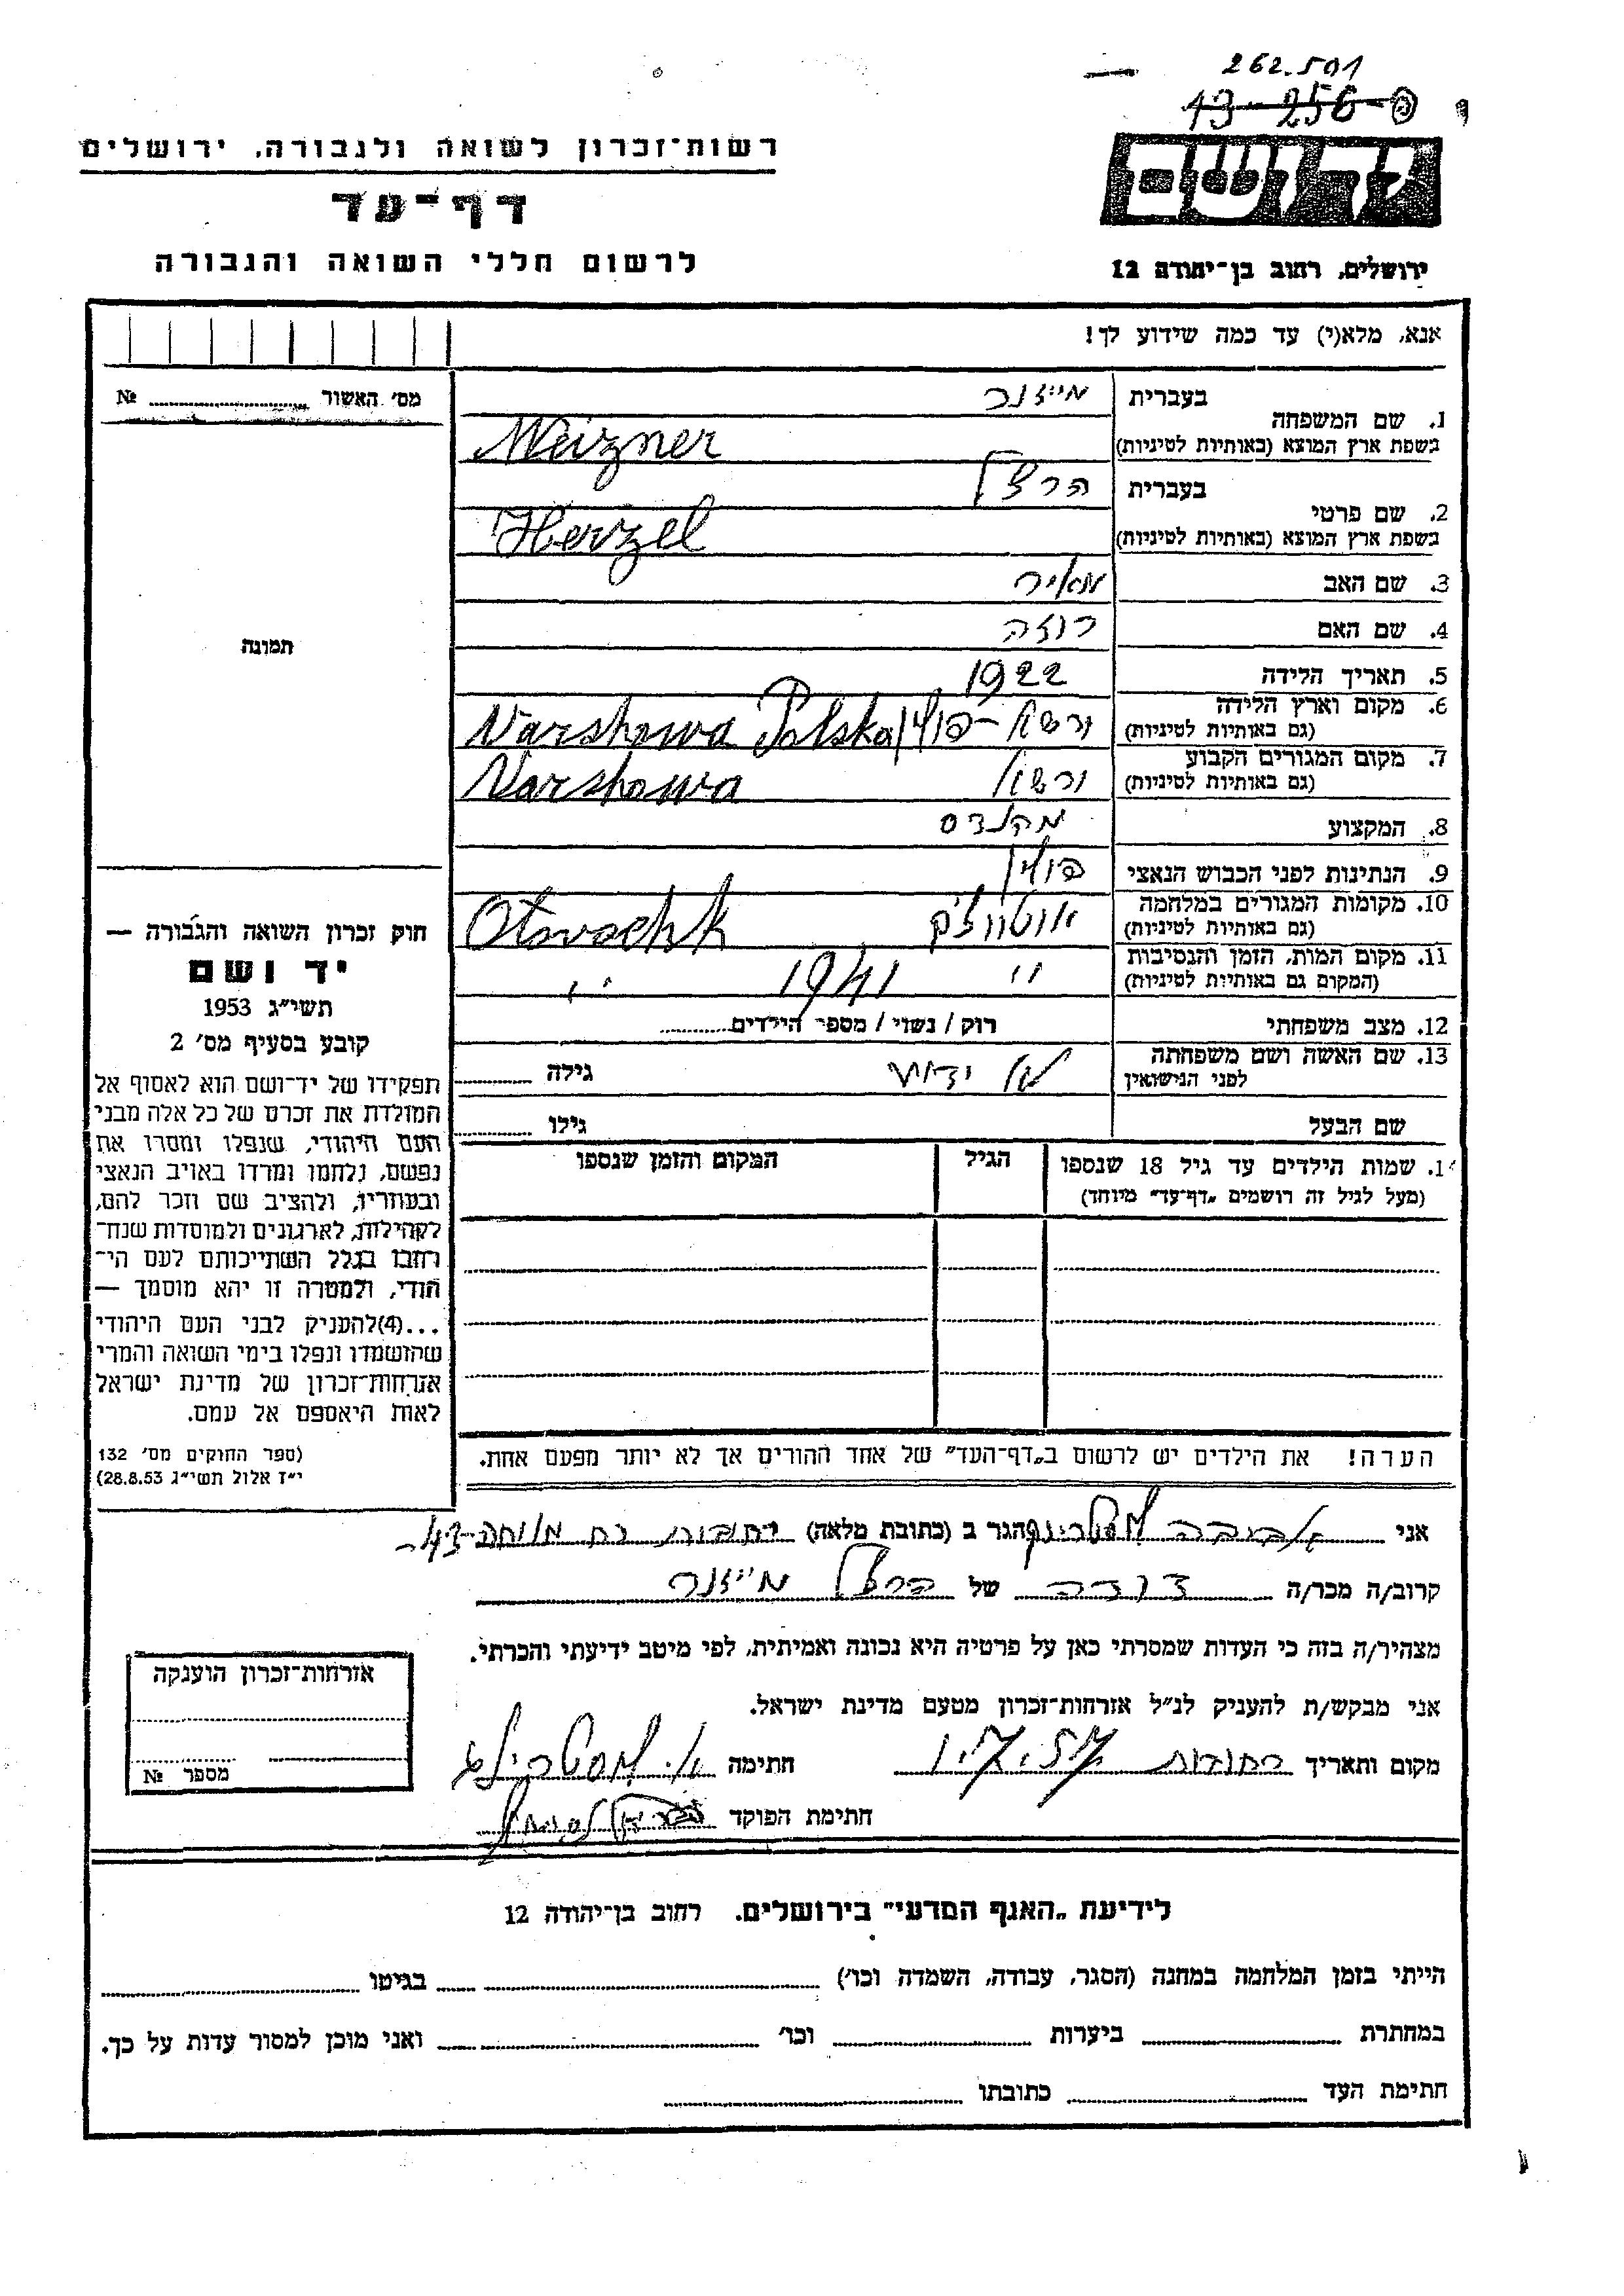 262.591
13-256-
רשות־זכרון לשואה ולגבורה, ירושלים
דף־עד
לרשום חללי השואה והגבורה
יד ושם
ירושלים, רחוב בן־יהודה 12
אנא, מלא(י) עד כמה שידוע לך!
מס׳ האשור № ........
תמונה
1. שם המשפחה
בעברית מייזנר
בשפת ארץ המוצא (באותיות לטיניות) Meizner
2. שם פרטי
בעברית הרצל
בשפת ארץ המוצא (באותיות לטיניות) Herzel
3. שם האב מאיר
4. שם האם רוזה
5. תאריך הלידה 1922
6. מקום וארץ הלידה
(גם באותיות לטיניות) ורשה - פולין Varshowa Polska
7. מקום המגורים הקבוע
(גם באותיות לטיניות) ורשה Varshowa
8. המקצוע מהנדס
9. הנתינות לפני הכבוש הנאצי פולין
10. מקומות המגורים במלחמה
(גם באותיות לטיניות) אוטווצק Otwochk
11. מקום המות, הזמן והנסיבות
(המקום גם באותיות לטיניות) " 1941 "
12. מצב משפחתי רוק / נשוי / מספר הילדים........
13. שם האשה ושם משפחתה
לפני הנישואין לא ידוע גילה ........
שם הבעל גילו ........
14. שמות הילדים עד גיל 18 שנספו הגיל המקום והזמן שנספו
(מעל לגיל זה רושמים „דף־עד״ מיוחד)
הערה! את הילדים יש לרשום ב„דף־העד״ של אחד ההורים אך לא יותר מפעם אחת.
חוק זכרון השואה והגבורה —
יד ושם
תשי״ג 1953
קובע בסעיף מס׳ 2
תפקידו של יד־ושם הוא לאסוף אל
המולדת את זכרם של כל אלה מבני
העם היהודי, שנפלו ומסרו את
נפשם, נלחמו ומרדו באויב הנאצי
ובעוזריו, ולהציב שם וזכר להם,
לקהילות, לארגונים ולמוסדות שנח־
רבו בגלל השתייכותם לעם הי־
הודי, ולמטרה זו יהא מוסמך —
...(4)להעניק לבני העם היהודי
שהושמדו ונפלו בימי השואה והמרי
אזרחות־זכרון של מדינת ישראל
לאות היאספם אל עמם.
(ספר החוקים מס׳ 132
י״ז אלול תשי״ג 28.8.53)
אני אביבה הגר ב (כתובת מלאה) רחובות רח מנוחה-43
קרוב/ה מכר/ה דודה של הרצל מייזנר
מצהיר/ה בזה כי העדות שמסרתי כאן על פרטיה היא נכונה ואמיתית, לפי מיטב ידיעתי והכרתי.
אני מבקש/ת להעניק לנ״ל אזרחות־זכרון מטעם מדינת ישראל.
מקום ותאריך רחובות חתימה
חתימת הפוקד
אזרחות־זכרון הוענקה
מספר №
לידיעת „האגף המדעי״ בירושלים. רחוב בן־יהודה 12
הייתי בזמן המלחמה במחנה (הסגר, עבודה, השמדה וכו׳) ........ בגיטו ........
במחתרת ........ ביערות ........ וכו׳ ........ ואני מוכן למסור עדות על כך.
חתימת העד ........ כתובתו ........